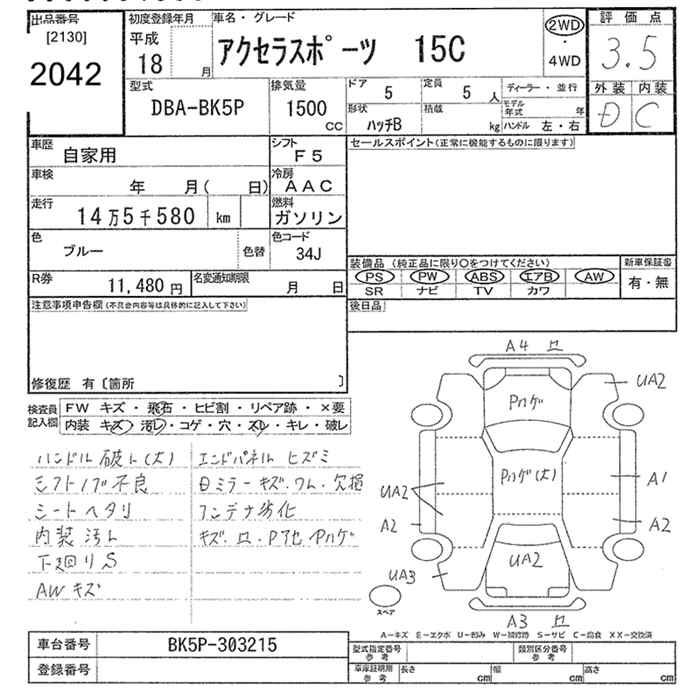 出品番号 初度登録年月 車名・グレード 評価点
[2130] 平成 2WD
2042 18 月 アクセラスポーツ 15C ・ 3.5
4WD
型式 排気量 ドア 5 定員 5 人 ディーラー・並行 外装 内装
DBA-BK5P 1500 cc 形状 ハッチB 積載 kg モデル年式 年 D C
ハンドル 左・右
車歴 自家用 シフト F5 セールスポイント(正常に機能するものに限ります)
車検 年 月( 日) 冷房 AAC
走行 14万5千580 km 燃料 ガソリン
色 ブルー 色替 色コード 34J
装備品 (純正品に限り○をつけてください) 新車保証書
R券 11,480円 名変通知期限 月 日 PS PW ABS エアB AW 有・無
SR ナビ TV カワ
注意事項申告欄(不具合内容等は具体的に記入して下さい) 後日品
修復歴 有〔箇所 〕
検査員記入欄 FW キズ・飛石・ヒビ割・リペア跡・×要
内装 キズ・汚レ・コゲ・穴・スレ・キレ・破レ
ハンドル破レ(大) エンドパネルヒズミ
シフトノブ不良 Dミラーキズ.ワレ.欠損
シートヘタリ コンデナ劣化
内装汚レ キズ.凹.Pアセ.Pハゲ
下廻りS
AWキズ
A4 凹
UA2
Pハゲ
Pハゲ(大)
UA2 A1
A2 A2
UA2
UA3
スペア
A3 凹
A−キズ E−エクボ U−凹み W−補修跡 S−サビ C−腐食 XX−交換済
車台番号 BK5P-303215 型式指定番号 参考 類別区分番号 参考
登録番号 車庫証明用 参考 長さ cm 幅 cm 高さ cm